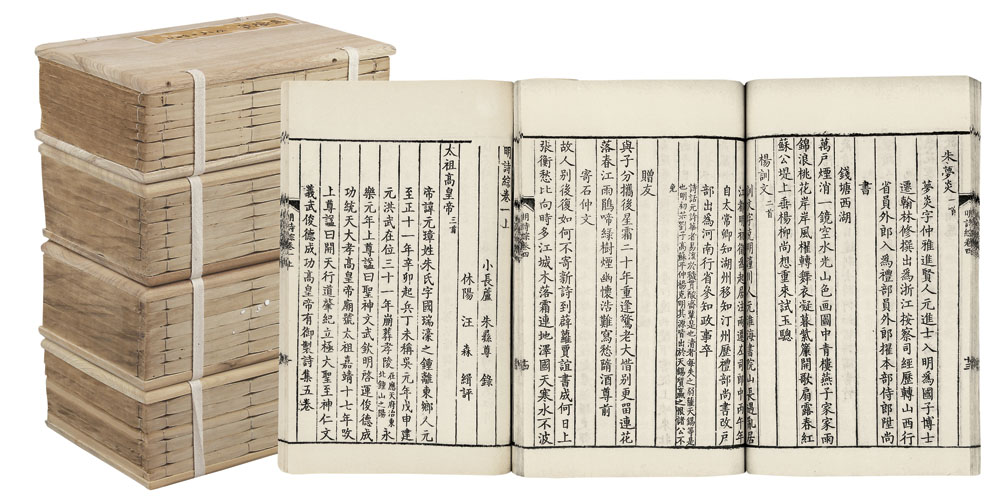 朱夢炎一首
夢炎字仲雅進賢人元進士入明爲國子博士
遷翰林修撰出爲浙江按察司經歷轉山西行
省員外郎入爲禮部員外郎擢本部侍郎陞尚
書
錢塘西湖
萬戶煙消一鏡空水光山色畫圖中青樓燕子家家雨
錦浪桃花岸岸風櫂轉舞衣凝暮紫簾開歌扇露春紅
蘇公堤上垂楊柳尚想重來試玉驄
楊訓文二首
明詩綜卷四
自太常卿知湖州移知汀州歷禮部尚書改戶
部出爲河南行省參知政事卒
贈友
與子分攜後星霜二十年重逢驚老大惜別更畱連花
落春江雨鵑啼綠樹煙幽懷浩難寫愁隋酒尊前
寄石仲文
故人別後復如何不寄新詩到薜蘿賈誼書成何日上
張衡愁比向時多江城木落霜連地澤國天寒水不波
明詩綜卷四
明詩綜卷一上
小長蘆 朱彝尊 錄
休陽 汪 森 緝評
太祖高皇帝三首
帝諱元璋姓朱氏字國瑞濠之鍾離東鄉人元
至正十一年辛卯起兵丁未稱吳元年戊申建
元洪武在位三十一年崩葬孝陵在應天府治東北鍾山之陽永
樂元年上尊諡曰聖神文武欽明啓運俊德成
功統天大孝高皇帝廟號太祖嘉靖十七年改
上尊諡曰開天行道肇紀立極大聖至神仁文
義武俊德成功高皇帝有御製詩集五卷